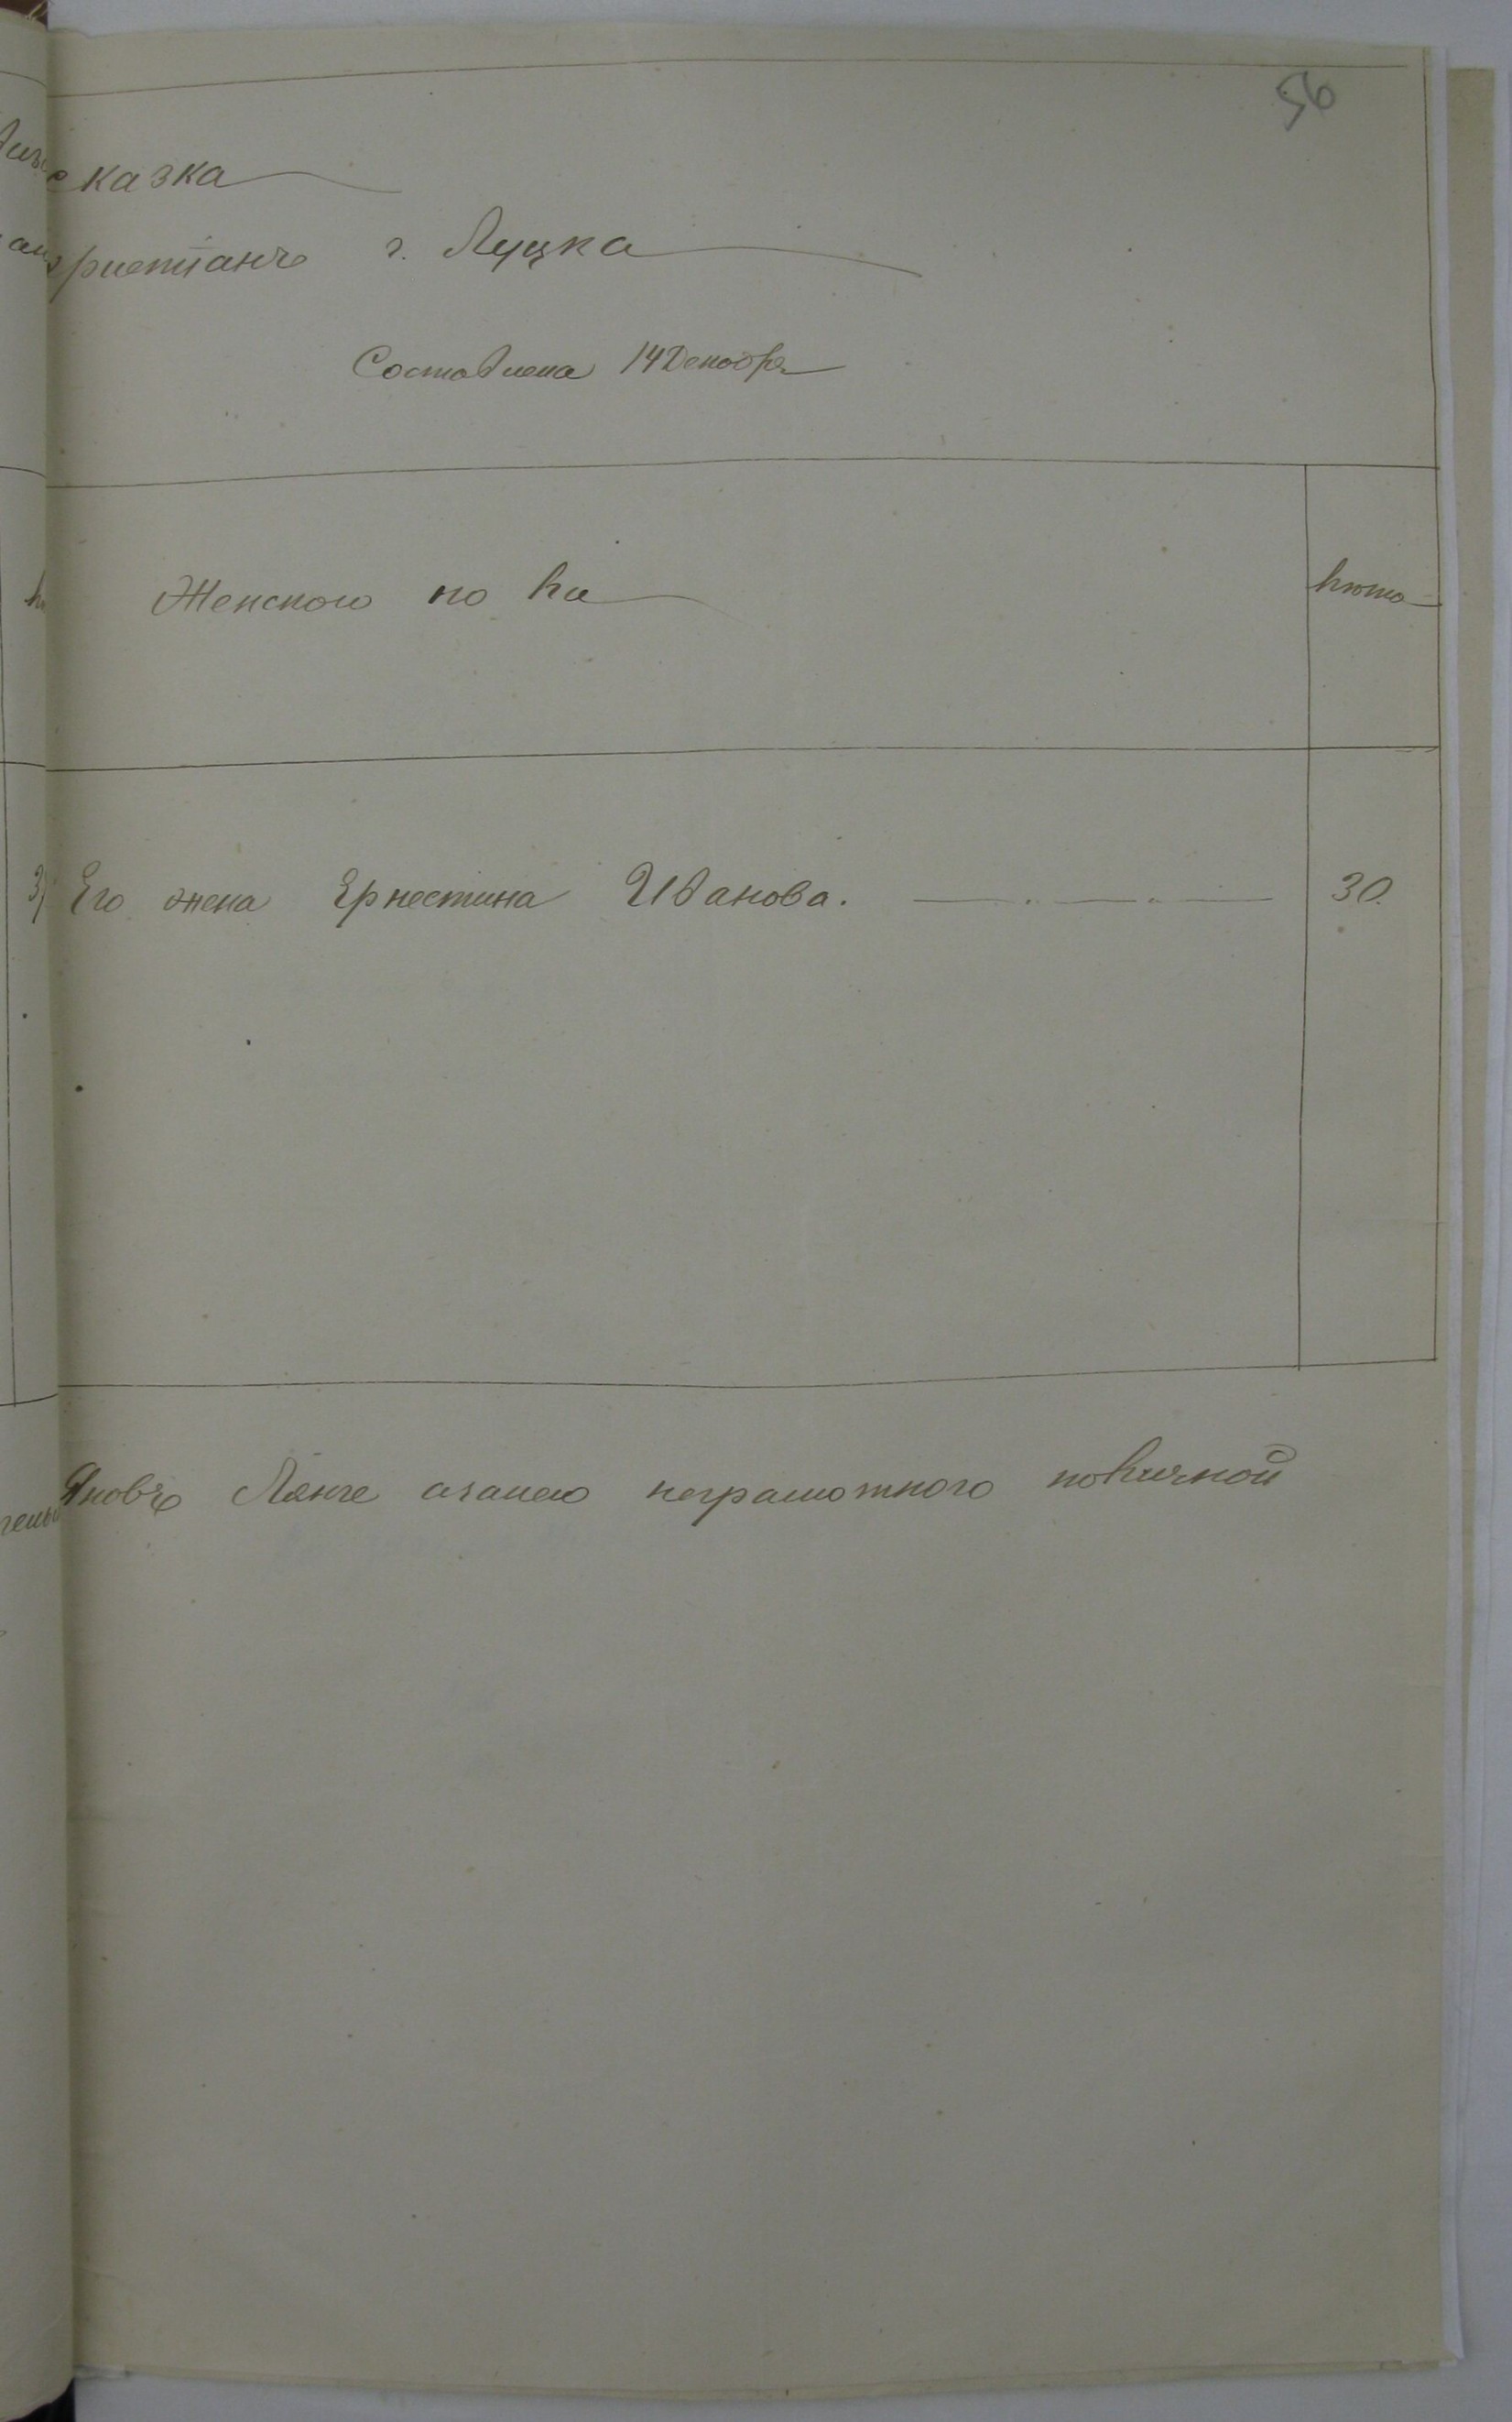 56
сказка
христіанъ г. Луцка
Составлена 14 Декабря
Женского пола
лѣта
Его жена Ернестина Иванова.
30.
Яковъ Лянге азанего неграмотного по личной